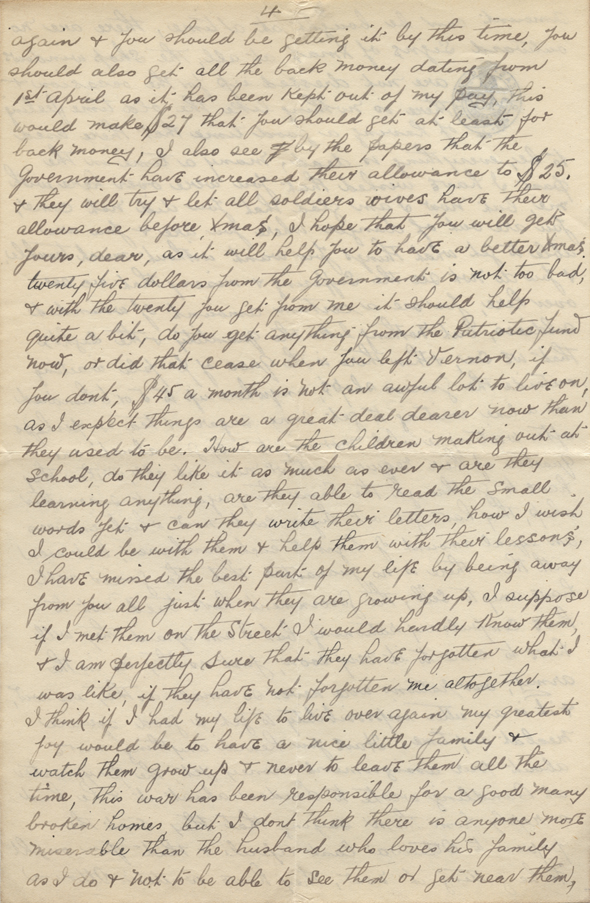 4
again & you should be getting it by this time, you
should also get all the back money dating from
1st April as it has been kept out of my pay, this
would make $27 that you should get at least for
back money, I also see by the papers that the
Government have increased their allowance to $25.
& they will try & let all soldiers wives have their
allowance before Xmas, I hope that you will get
yours, dear, as it will help you to have a better Xmas.
twenty five dollars from the Government is not too bad,
& with the twenty you get from me it should help
quite a bit, do you get anything from the Patriotic fund
now, or did that cease when you left Vernon, if
you dont, $45 a month is not an awful lot to live on,
as I expect things are a great deal dearer now than
they used to be. How are the children making out at
school, do they like it as much as ever & are they
learning anything, are they able to read the small
words yet & can they write their letters, how I wish
I could be with them & help them with their lessons,
I have missed the best part of my life by being away
from you all just when they are growing up, I suppose
if I met them on the Street I would hardly know them,
& I am perfectly sure that they have forgotten what I
was like, if they have not forgotten me altogether.
I think if I had my life to live over again my greatest
joy would be to have a nice little family &
watch them grow up & never to leave them all the
time, this war has been responsible for a good many
broken homes, but I dont think there is anyone more
miserable than the husband who loves his family
as I do & not to be able to see them or get near them,